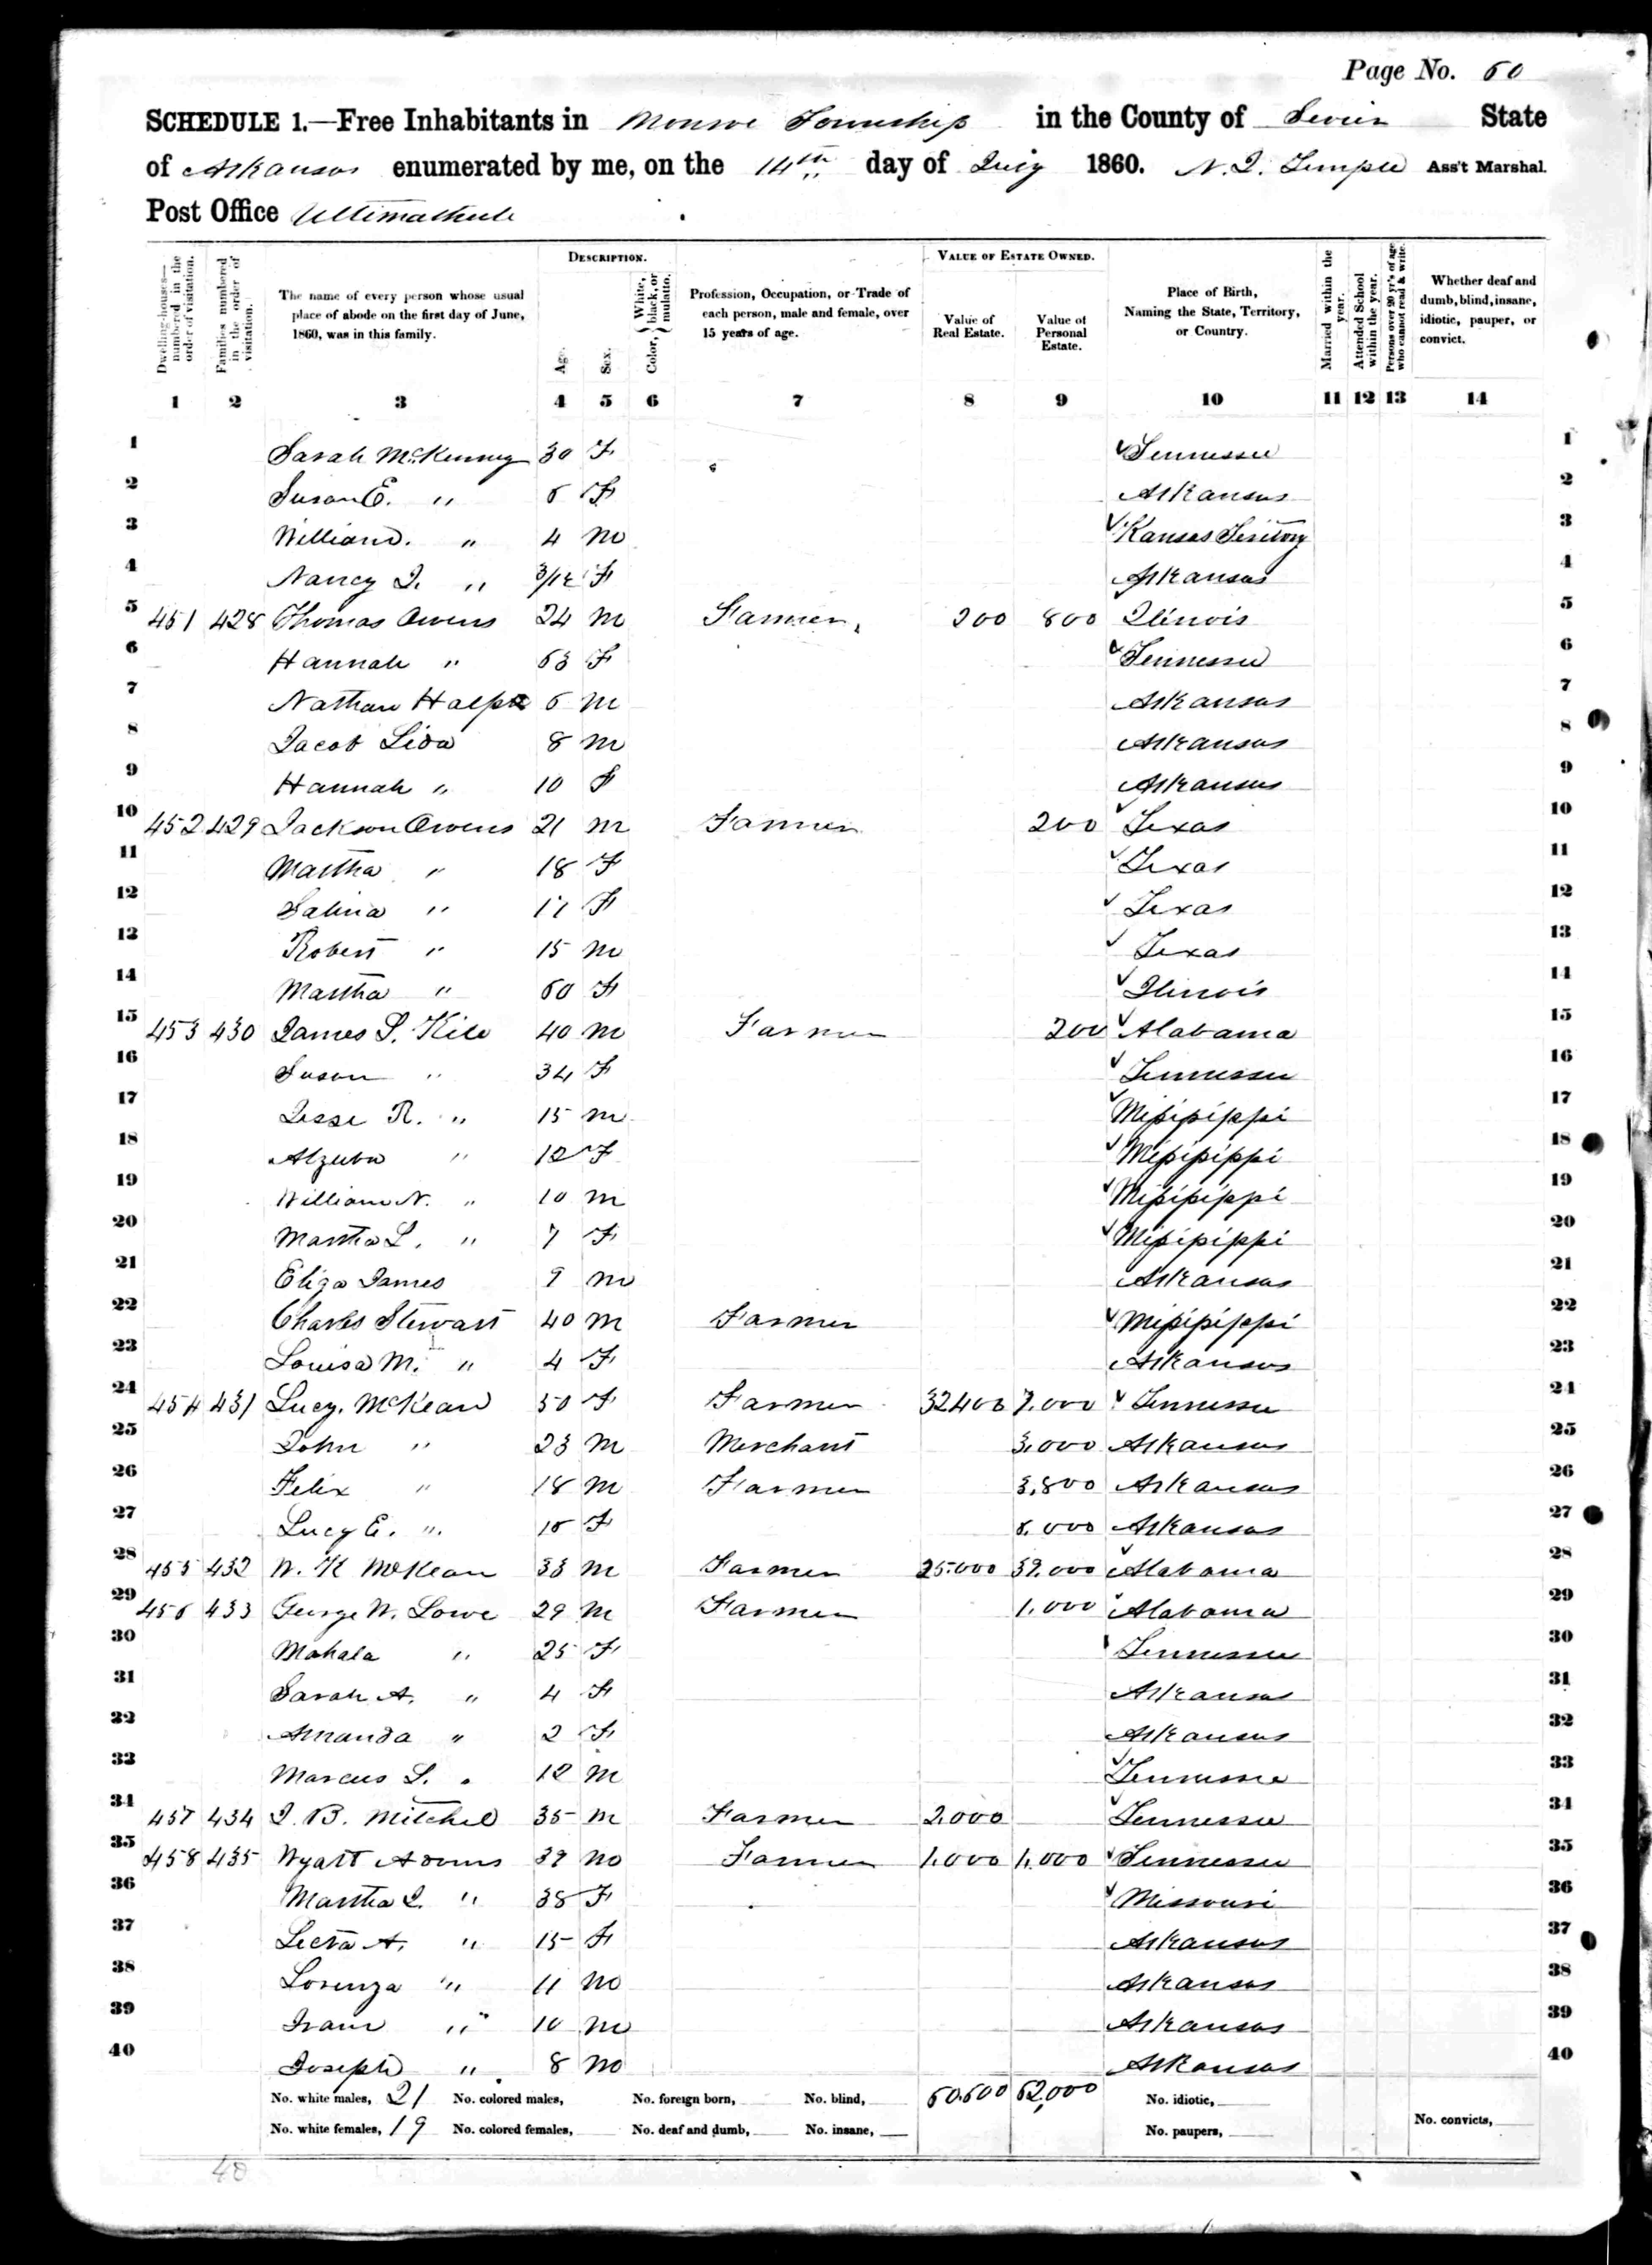 Page No. 60
SCHEDULE 1.—Free Inhabitants in Monroe Township in the County of Sevier State
of Arkansas enumerated by me, on the 14th day of July 1860. N. J. Temple Ass't Marshal.
Post Office Ultimathule
DESCRIPTION. VALUE OF ESTATE OWNED.
Dwelling-houses—numbered in the order of visitation. Families numbered in the order of visitation. The name of every person whose usual place of abode on the first day of June, 1860, was in this family. Age. Sex. Color, White, black, or mulatto. Profession, Occupation, or Trade of each person, male and female, over 15 years of age. Value of Real Estate. Value of Personal Estate. Place of Birth, Naming the State, Territory, or Country. Married within the year. Attended School within the year. Persons over 20 yr's of age who cannot read & write. Whether deaf and dumb, blind, insane, idiotic, pauper, or convict.
1 2 3 4 5 6 7 8 9 10 11 12 13 14
1 Sarah McKenney 30 F Tennessee 1
2 Susan E. " 6 F Arkansas 2
3 William. " 4 m Kansas Teritory 3
4 Nancy J. " 3/12 F Arkansas 4
5 451 428 Thomas Owens 24 m Farmer 200 800 Ilinois 5
6 Hannah " 63 F Tennessee 6
7 Nathan 6 m Arkansas 7
8 Jacob 8 m Arkansas 8
9 Hannah " 10 F Arkansas 9
10 452 429 Jackson Owens 21 m Farmer 200 Texas 10
11 Martha " 18 F Texas 11
12 Salina " 17 F Texas 12
13 Robert " 15 m Texas 13
14 Martha " 60 F Ilinois 14
15 453 430 James S. Kile 40 m Farmer 200 Alabama 15
16 Susan " 34 F Tennessee 16
17 Jesse R. " 15 m Mississippi 17
18 Alzuba " 12 F Mississippi 18
19 William N. " 10 m Mississippi 19
20 Martha L. " 7 F Mississippi 20
21 Eliza James 9 m Arkansas 21
22 Charles Stewart 40 m Farmer Mississippi 22
23 Louisa M. " 4 F Arkansas 23
24 454 431 Lucy. McKean 50 F Farmer 32400 7.000 Tennessee 24
25 John " 23 m Merchant 3,000 Arkansas 25
26 Felix " 18 m Farmer 3,800 Arkansas 26
27 Lucy E. " 16 F 6.000 Arkansas 27
28 455 432 W. K McKean 33 m Farmer 25.000 39.000 Alabama 28
29 456 433 George W. Lowe 29 m Farmer 1.000 Alabama 29
30 Mahala " 25 F Tennessee 30
31 Sarah A. " 4 F Arkansas 31
32 Amanda " 2 F Arkansas 32
33 Marcus L. " 12 m Tennessee 33
34 457 434 J. B. Mitchel 35 m Farmer 2.000 Tennessee 34
35 458 435 Wyatt Adams 39 m Farmer 1.000 1,000 Tennessee 35
36 Martha J. " 38 F Missouri 36
37 Lecta A. " 15 F Arkansas 37
38 Lorenza " 11 m Arkansas 38
39 " 10 m Arkansas 39
40 Joseph " 8 m Arkansas 40
No. white males, 21 No. colored males, No. foreign born, No. blind, 60.600 62.000 No. idiotic,
No. white females, 19 No. colored females, No. deaf and dumb, No. insane, No. paupers, No. convicts,
40